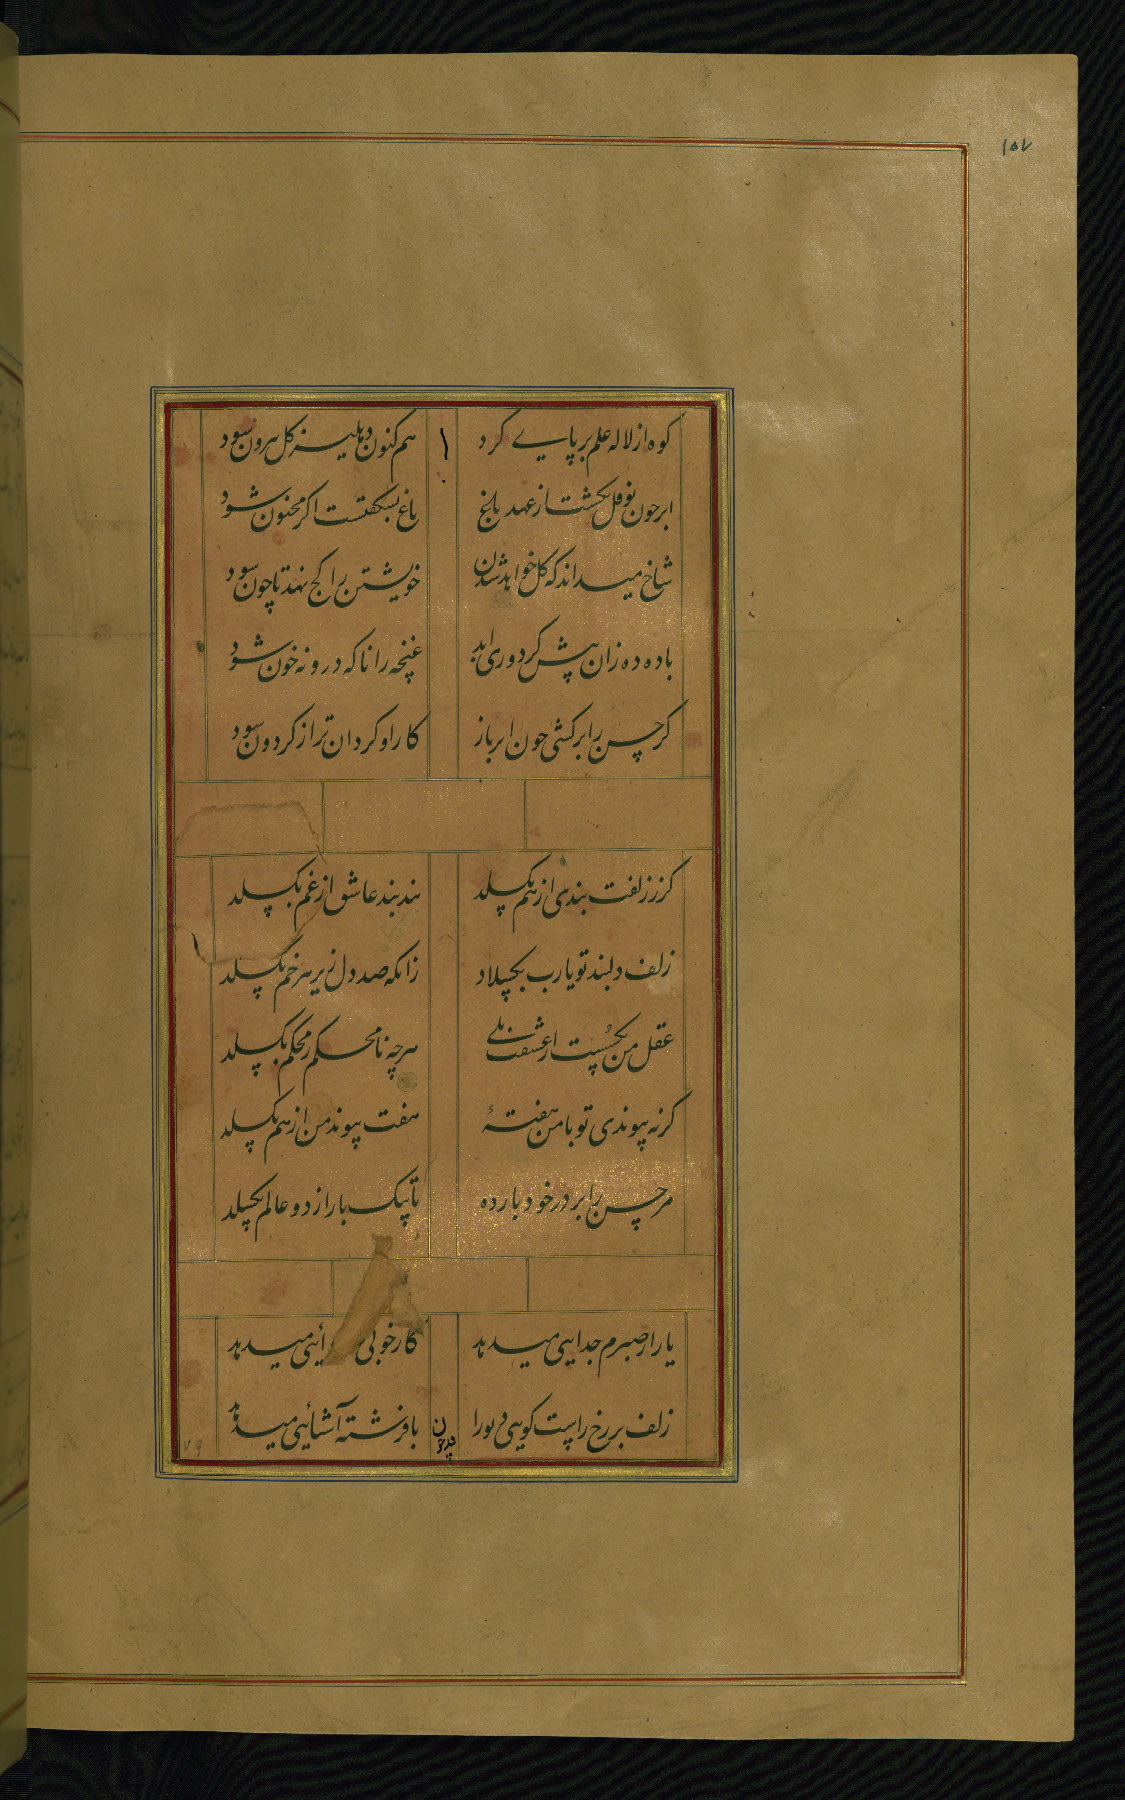 ۱۵۷
کوه از لاله علم بر پایے کرد هم کنون دهلیز کل بیرون سود
ابر چون نوفل بکشت از عهد بلخ باغ بشکفتست اکر مجنون شود
شاخ میداند که کل خواهد شدن خویشتن را کج نهد تا چون سود
باده ده زان پیش کر دوری اید غنچه را ناکه درونه خون شود
کر حسن را برکشی چون ابر باز کار او کردان تر از کردون سود
کر ز زلفت بندی از هم بکسلد بند بند عاشق از غم بکسلد
زلف دلبند تو یارب بکسلاد زانکه صد دل زیر هر خم بکسلد
عقل من بکسست از عشقت بلے هرچه نامحکم ز محکم بکسلد
کر نه پیوندی تو با من هفتهٔ هفت پیوند من از هم بکسلد
مر حسن را بر در خود بار ده تا بیک بار از دو عالم بکسلد
یار از صبرم جدایی میدهد کار خوبی ائی میدهد
زلف بر رخ راست کویی دیو را با فرشته آشنائی میدهد
۷۹